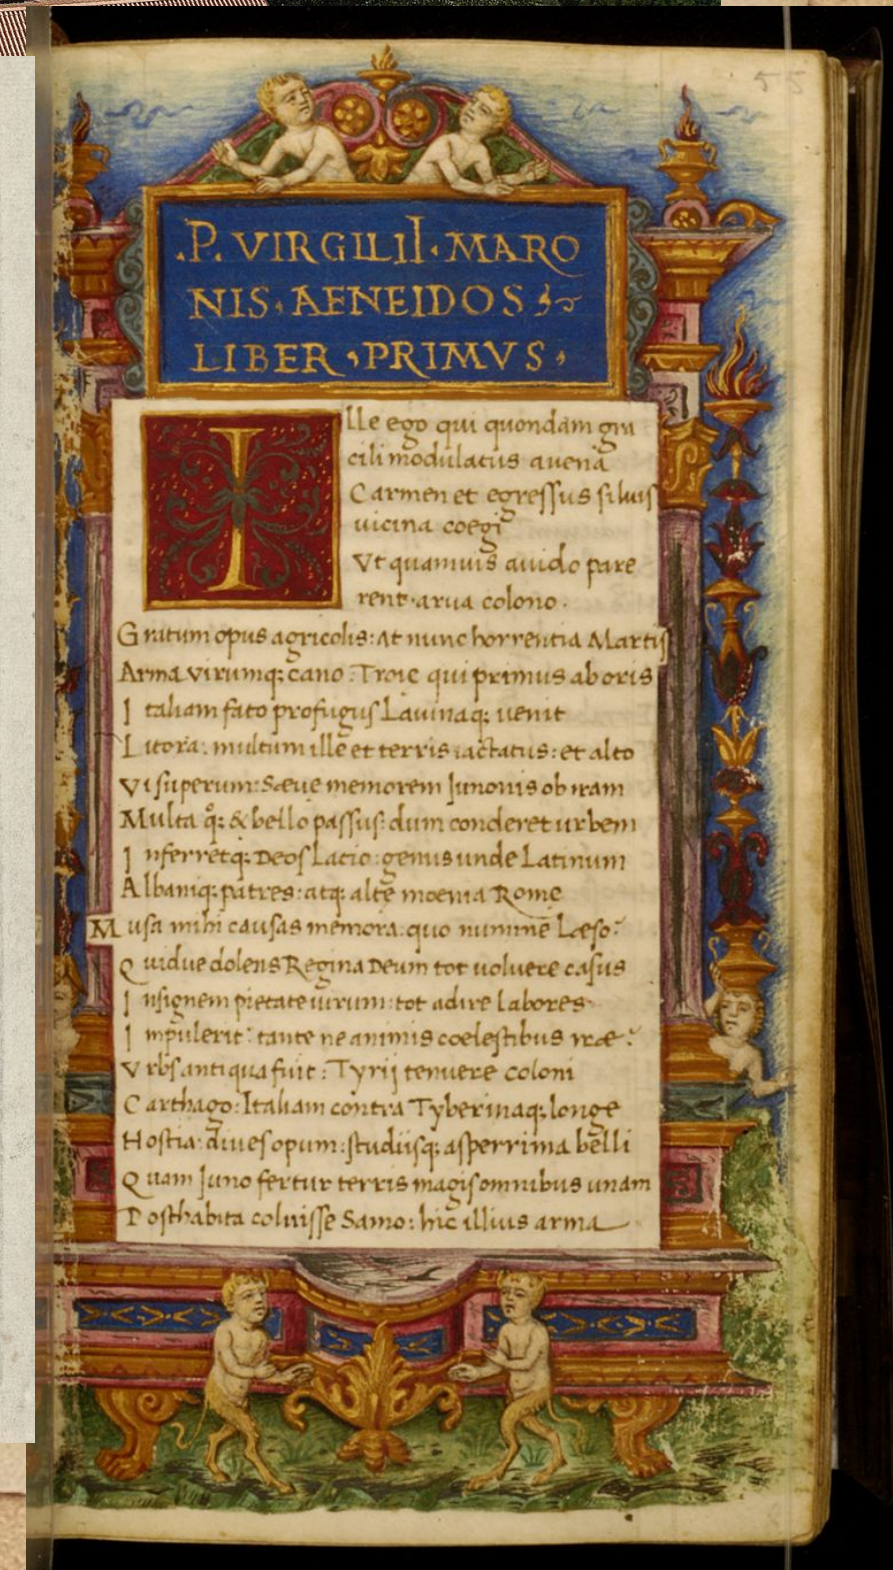 55
.P. VIRGILII · MARO
NIS · AENEIDOS
LIBER , PRIMVS ,
Ille ego qui quondam gra
cili modulatus auena
Carmen et egressus siluis
uicina coegi
Vt quamuis auido pare
rent · arua colono .
Gratum opus agricolis: at nunc horrentia Martis
Arma virumq; cano : Troie qui primus ab oris
Italiam fato profugus Lauinaq; uenit
Litora : multum ille et terris iactatus : et alto
Vi superum: Sæue memorem Junonis ob iram
Multa q̊; & bello passus: dum conderet urbem
Inferretq; Deos Latio : genus unde Latinum
Albaniq; patres : atq; altę moenia Rome
Musa mihi causas memora: quo numine Læso?
Quidue dolens Regina Deum tot uoluere casus
Insignem pietate uirum: tot adire labores
Impulerit: tante ne animis coelestibus iræ?
Vrbs antiqua fuit : Tyrij tenuere coloni
Carthago: Italiam contra Tyberinaq; longe
Hostia: diues opum: studiisq; asperrima belli
Quam Juno fertur terris magis omnibus unam
Posthabita coluisse Samo : hic illius arma